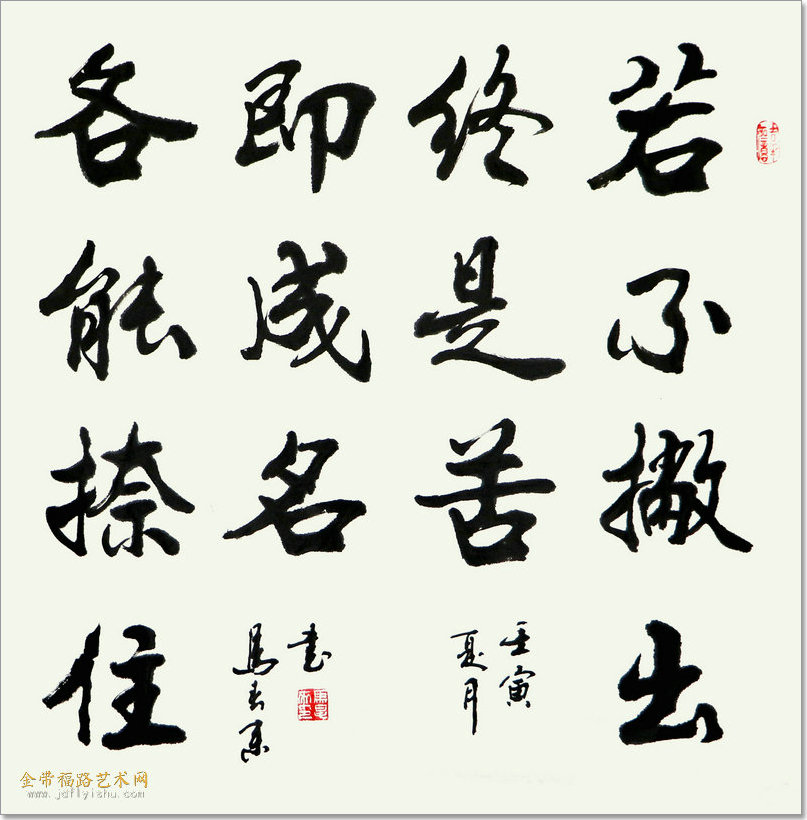 若不撇出
终是苦
壬寅
夏月
即成名
书
各能捺住
金带福路艺术网
www.jdflyishu.com